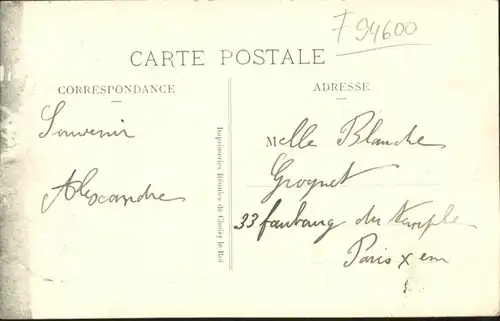 F 94600
CARTE POSTALE
CORRESPONDANCE
ADRESSE
Souvenir
Alexandre
Imprimeries Réunies de Choisy le Roi
Melle Blanche
Grognet
33 faubourg du Temple
Paris X em